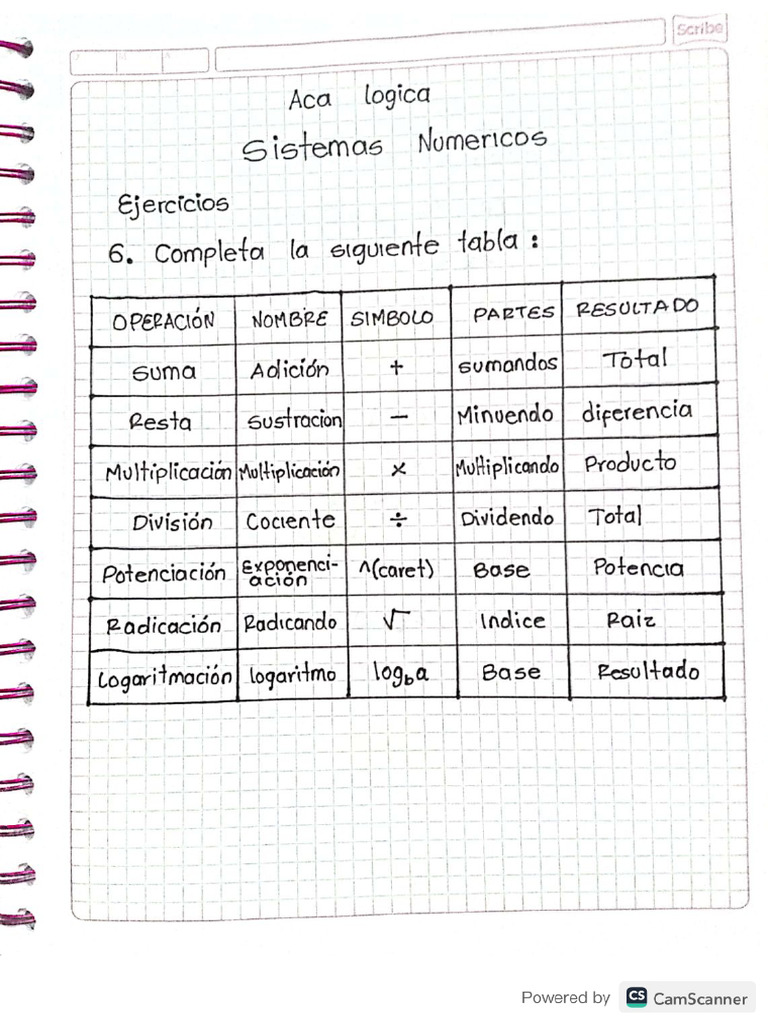 Scribe
Aca logica
Sistemas Numericos
Ejercicios
6. Completa la siguiente tabla :
OPERACIÓN NOMBRE SIMBOLO PARTES RESULTADO
Suma Adición + sumandos Total
Resta Sustracion − Minuendo diferencia
Multiplicación Multiplicación × Multiplicando Producto
División Cociente ÷ Dividendo Total
Potenciación Exponenci-
ación ^(caret) Base Potencia
Radicación Radicando √ Indice Raiz
Logaritmación logaritmo log_b a Base Resultado
Powered by CS CamScanner